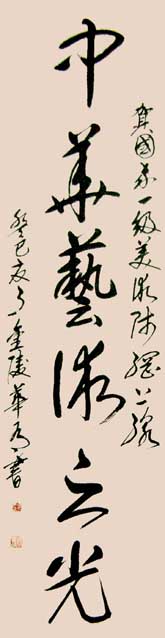 賀國家一級美術師
中華藝術之光
癸巳夏 金陵 華 書